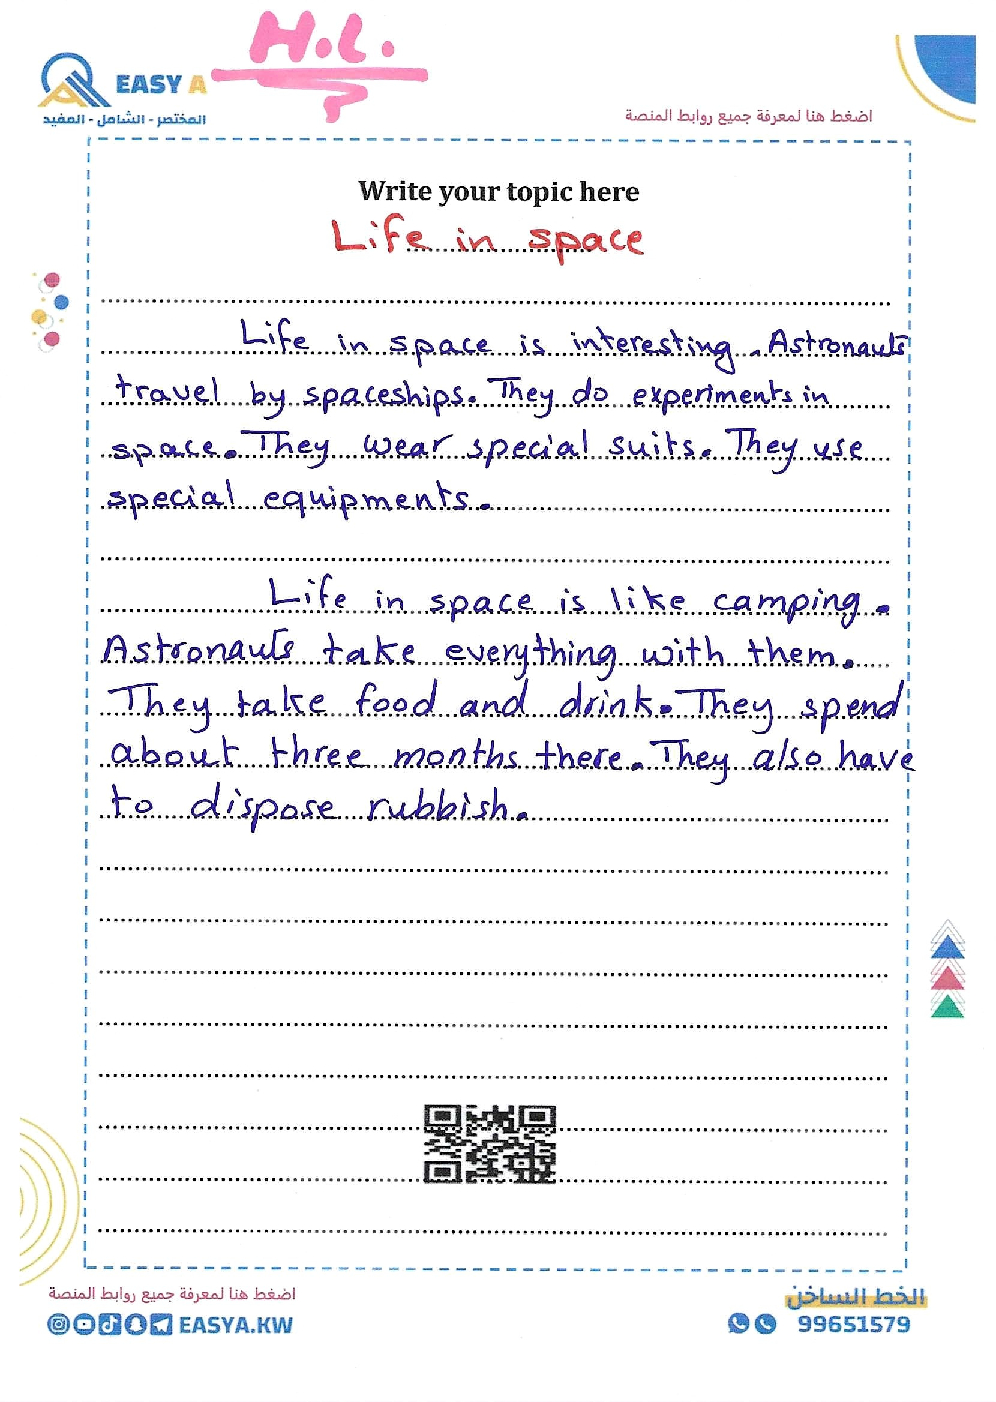 H.L.
EASY A
المختصر - الشامل - المفيد
اضغط هنا لمعرفة جميع روابط المنصة
Write your topic here
Life in space
Life in space is interesting. Astronauts
travel by spaceships. They do experiments in
space. They wear special suits. They use
special equipments.
Life in space is like camping.
Astronauts take everything with them.
They take food and drink. They spend
about three months there. They also have
to dispose rubbish.
اضغط هنا لمعرفة جميع روابط المنصة
EASYA.KW
الخط الساخن
99651579